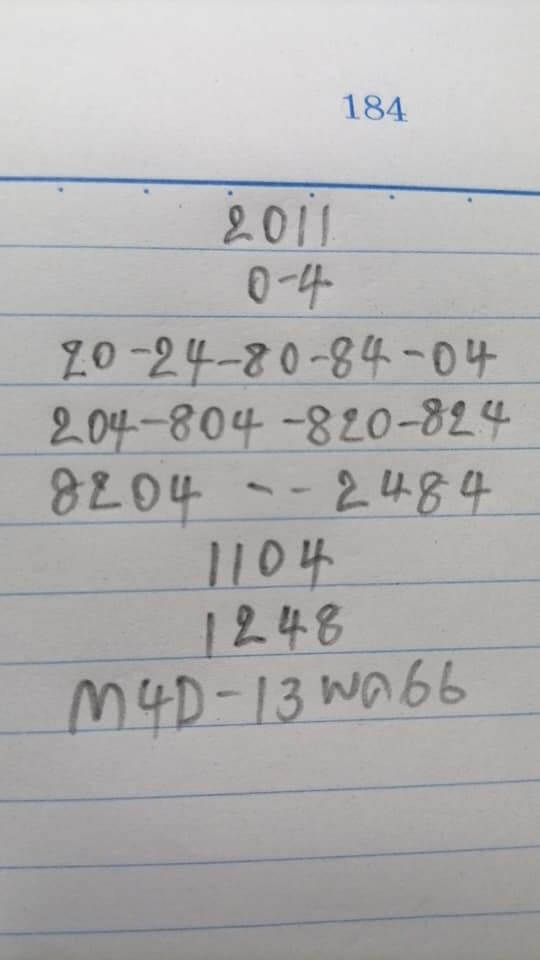 184
2011
0-4
20-24-80-84-04
204-804-820-824
8204 -- 2484
1104
1248
M4D-13พค66